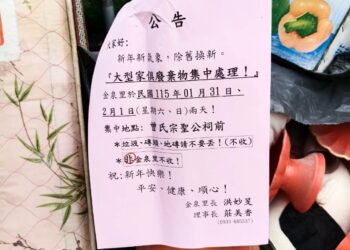 公告
大家好：
新年新氣象，除舊換新。
『大型家俱廢棄物集中處理！』
金泉里於民國115年01月31日、
2月1日(星期六、日)兩天！
集中地點：曾氏宗聖公祠前
*垃圾、磚頭、地磚請不要丟！(不收)
*非金泉里不收！
祝：新年快樂！
平安、健康、順心！
金泉里長 洪妙旻
理事長 莊美香